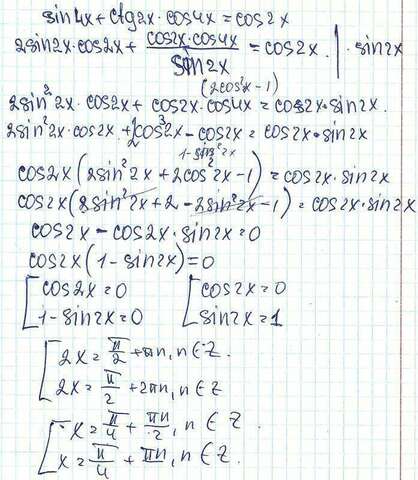 sin4x + ctg2x · cos4x = cos2x
2sin2x · cos2x + (cos2x · cos4x)/(sin2x) = cos2x. | · sin2x
(2cos²x − 1)
2sin²2x · cos2x + cos2x · cos4x = cos2x · sin2x.
2sin²2x · cos2x + 2cos³2x − cos2x = cos2x · sin2x
1 − sin²2x
cos2x (2sin²2x + 2cos²2x − 1) = cos2x · sin2x
cos2x (2sin²2x + 2 − 2sin²2x − 1) = cos2x · sin2x
cos2x − cos2x · sin2x = 0
cos2x (1 − sin2x) = 0
[ cos2x = 0 [ cos2x = 0
1 − sin2x = 0 sin2x = 1
[ 2x = π/2 + πn, n ∈ Z.
2x = π/2 + 2πn, n ∈ Z
[ x = π/4 + πn/2, n ∈ Z.
x = π/4 + πn, n ∈ Z.